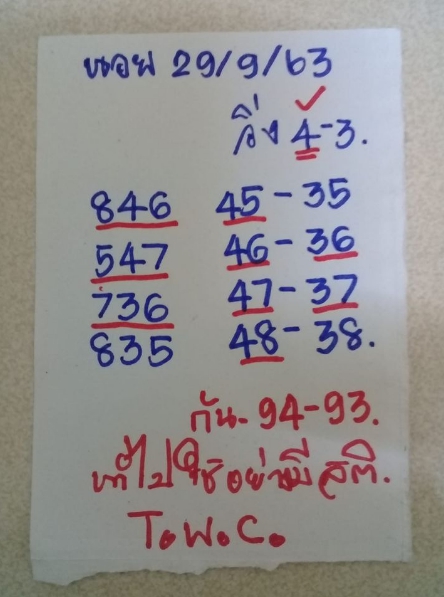 หอย 29/9/63
วิ่ง 4-3.
846 45-35
547 46-36
736 47-37
835 48-38.
กัน-94-93.
นำไปใช้อย่างมีสติ.
T.W.C.